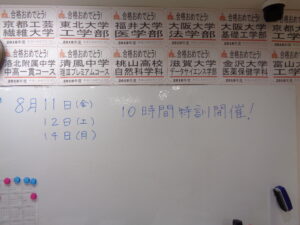 合格おめでとう!
京都工芸
繊維大学
合格おめでとう!
東北大学
工学部
合格おめでとう!
福井大学
医学部
合格おめでとう!
大阪大学
法学部
合格おめでとう!
大阪大学
基礎工学部
合格おめでとう!
中高一貫コース
合格おめでとう!
清風中学
理Ⅲプレミアムコース
合格おめでとう!
桃山高校
自然科学科
合格おめでとう!
滋賀大学
データサイエンス学部
合格おめでとう!
金沢大学
医薬保健学科
富山
8月11日(金)
12日(土)
14日(月)
10時間特訓開催!